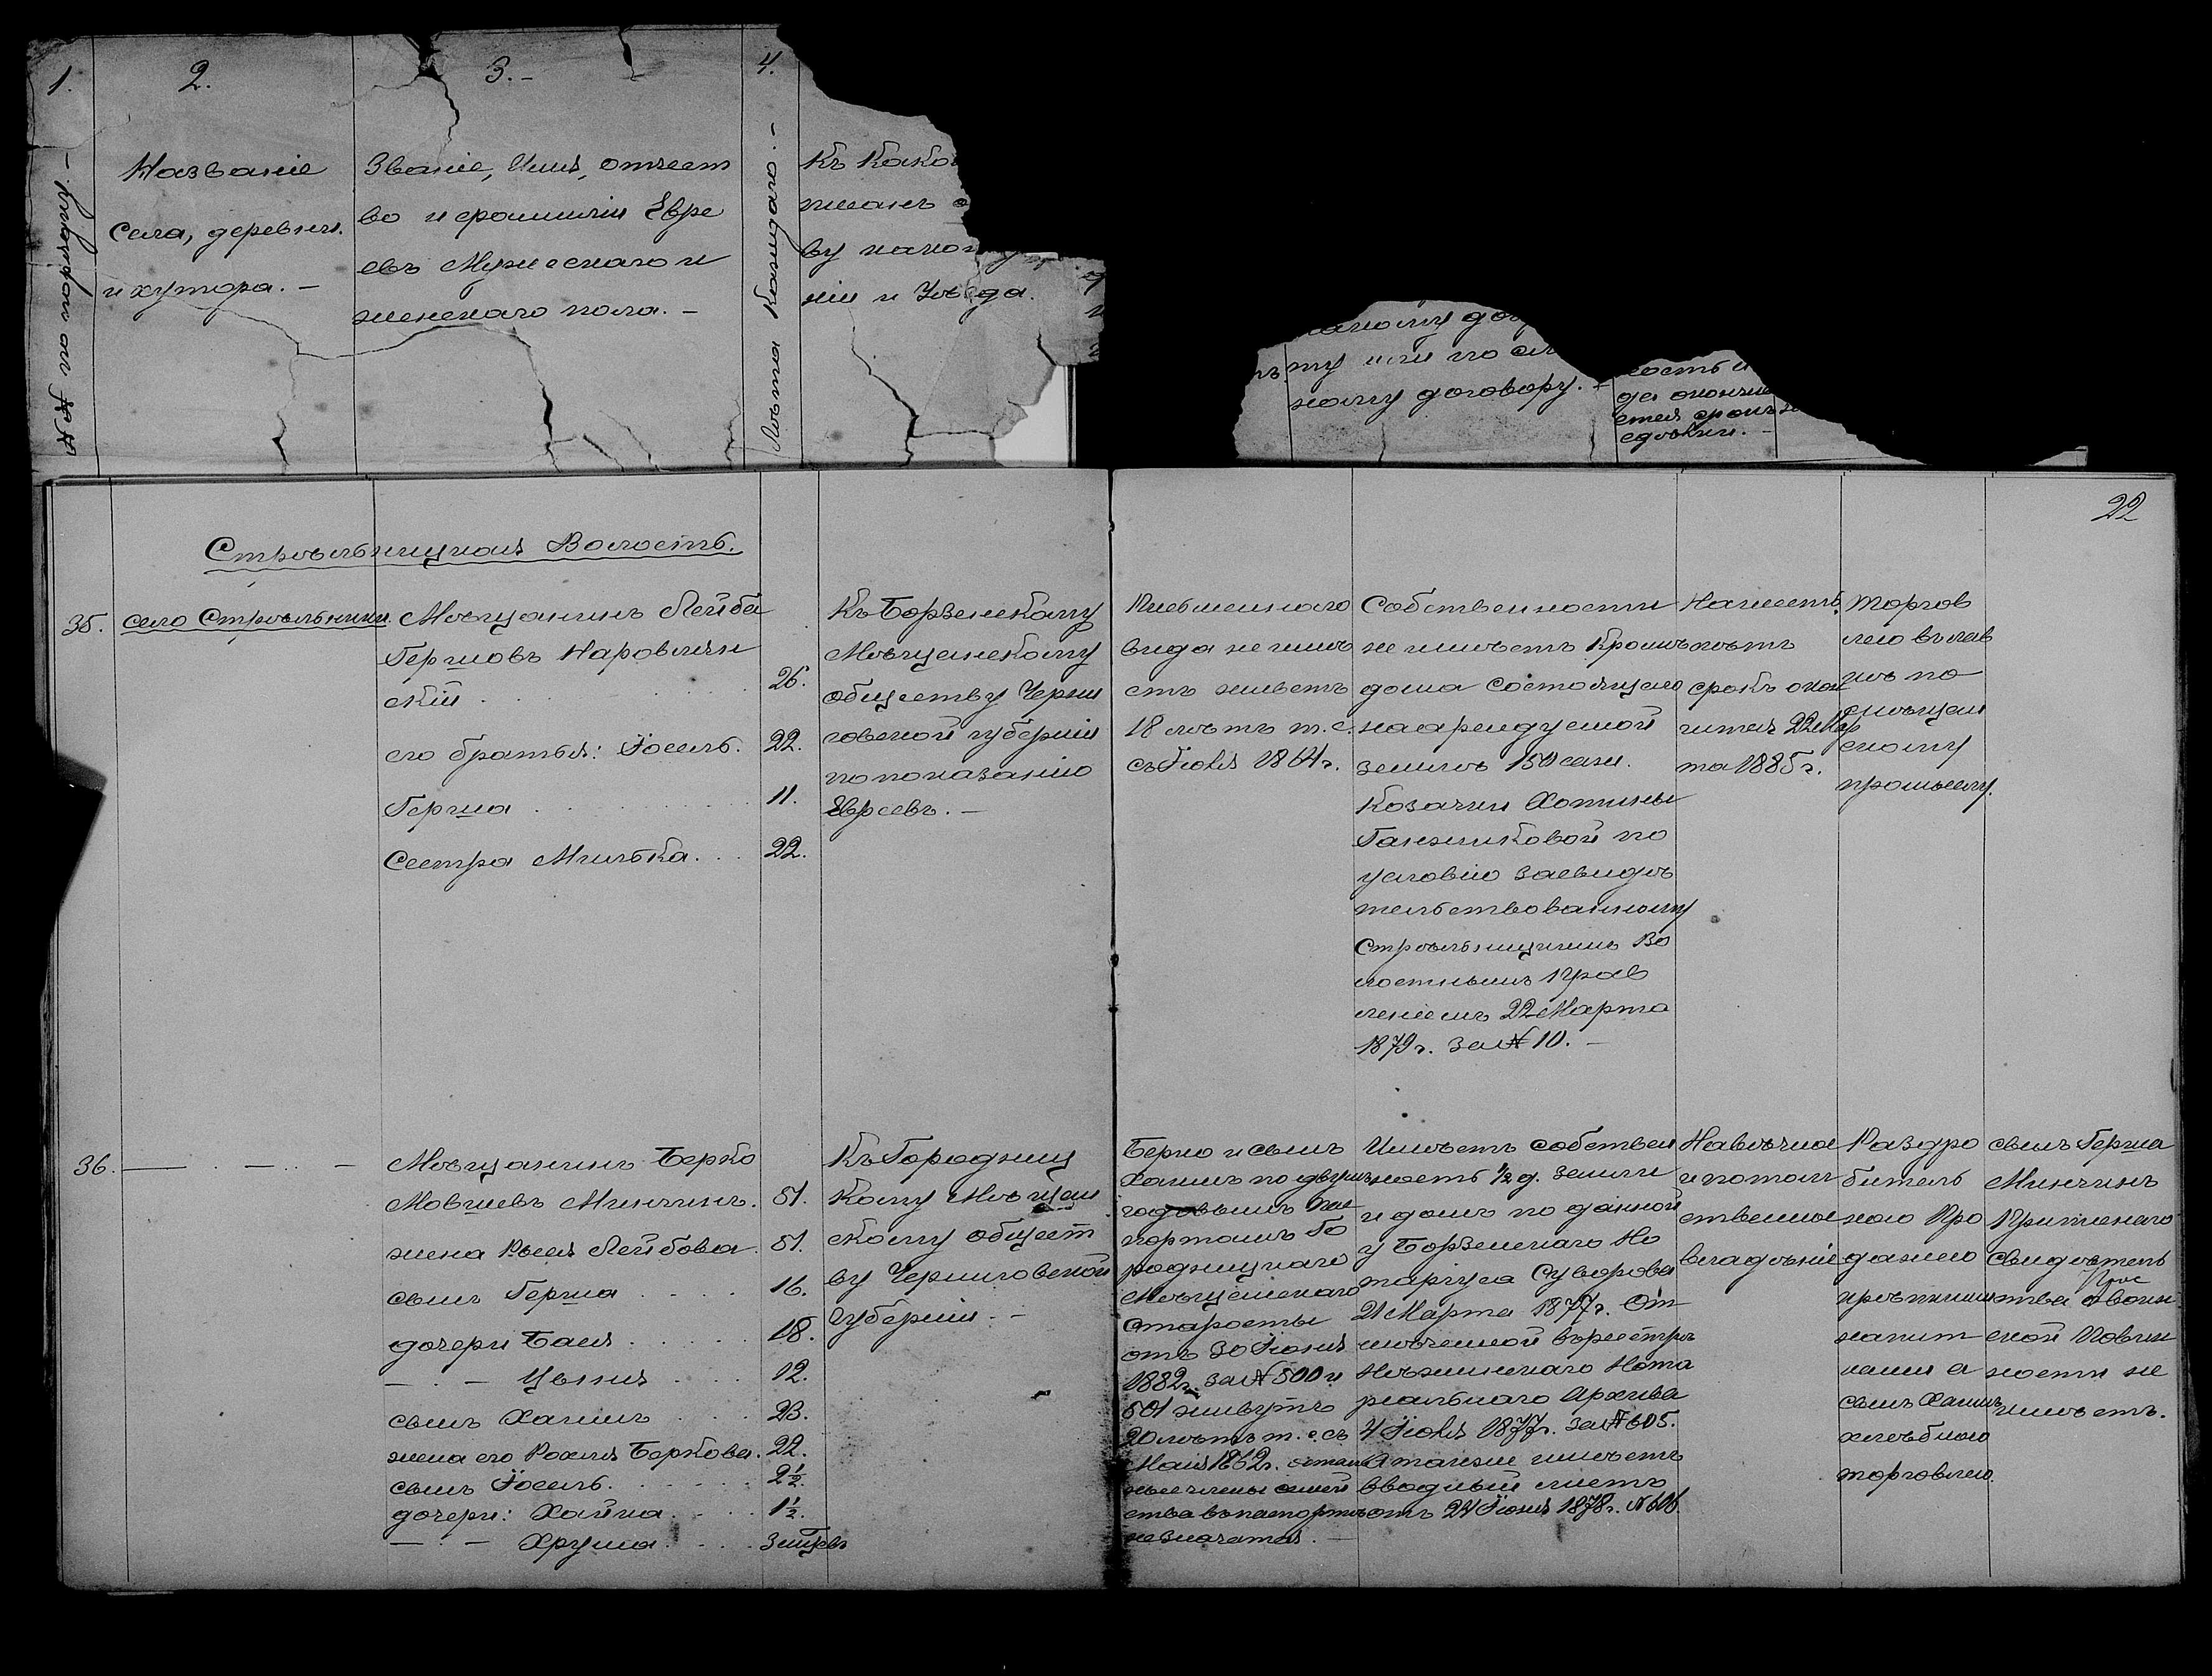 1.
2.
3.-
4.
№№ по порядку.-
Названіе
села, деревни
и хутора.-
Званіе, Имя, отчест
во и фамилія Евре
евъ Мужескаго и
женскаго пола.-
Лѣта Каждаго.-
Къ Како
писанъ
ву
ніи и Уѣзда.
му или по
ному договору.-
ность и
да оконча
ется срокъ
сдѣлки.-
22
Стрѣльницкая Волость.
35.
село Стрѣльники.
Мѣщанинъ Лейба
Гершовъ Наровлян
скій . . . 26.
его братья: Іосель. 22.
Герша . . . 11.
Сестра Мнилька. . . 22.
Къ Борзенскому
Мѣщанскому
обществу Черни
говской губерніи
по показанію
Евреевъ.-
Письменного
вида не имѣ
етъ живетъ
18 лѣтъ т.е.
съ Іюля 1864г.
Собственности
не имѣетъ кромѣ
дома состоящаго
на арендуемой
землѣ 150 саж.
Козачки Хотины
Ганжиковой по
условію засвидѣ
тельствованному
Стрѣльницкимъ Во
лостнымъ Прав
леніемъ 22 Марта
1879г. за № 10.-
На шесть
лѣтъ
срокъ окон
чится 22 Мар
та 1885г.
Торгов
лею въ лав
кѣ по
мѣщан
скому
промыслу.
36.
— . — .. —
Мѣщанинъ Берко
Мовшевъ Минчинъ. 51.
жена Рыся Лейбова. 51.
сынъ Герша . . . 16.
дочери Бася . . . 18.
— . — Цыпя . . . 12.
сынъ Хаимъ . . . 23.
жена его Рохля Беркова. 22.
сынъ Іосель. . . . 2½.
дочери: Хайка . . . 1½.
— . — Хруша . . . 3 мѣсяц.
Къ Городниц
кому Мѣщан
скому общест
ву Черниговской
Губерніи.-
Берко и сынъ
Хаимъ по двумъ
годовымъ пас
портамъ Го
родницкаго
Мѣщанскаго
старосты
отъ 30 Іюня
1882г. за № 500 и
501 живутъ
20 лѣтъ т.е. съ
Мая 1862г. осталь
ные члены семей
ства въ паспортѣ
не значатся.-
Имѣетъ собствен
ность ½ д. земли
и домъ по данной
у Борзенскаго Но
таріуса Суворова
21 Марта 1877г. От
мѣченной въ реестръ
Нѣжинскаго Нота
ріальнаго Архива
4 Іюля 1877г. за № 605.
а также имѣетъ
вводный листъ
отъ 24 Іюня 1878г. № 606.
На вѣчное
и потом
ственное
владѣніе
Раздро
битель
ною Про
дажею
крѣпкими
напит
ками а
сынъ Хаимъ
хлѣбною
торговлею.
сынъ Герша
Минчинъ
Приписнаго
свидѣтель
ства о воин
ской Повин
ности не
имѣетъ.